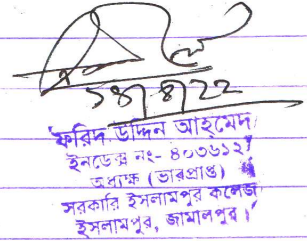 ১৪/৪/২২
ফরিদ উদ্দিন আহমেদ
ইনডেক্স নং- ৪০৩৬১২
অধ্যক্ষ (ভারপ্রাপ্ত)
সরকারি ইসলামপুর কলেজ
ইসলামপুর, জামালপুর।